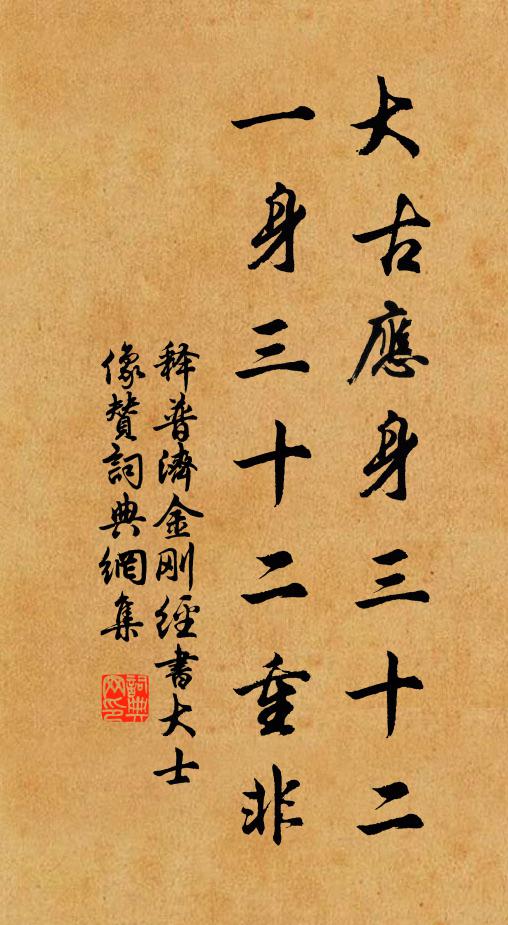 大古應身三十二
一身三十二重非
釋普濟金剛經書大士
像贊詞典網集
詞典網印